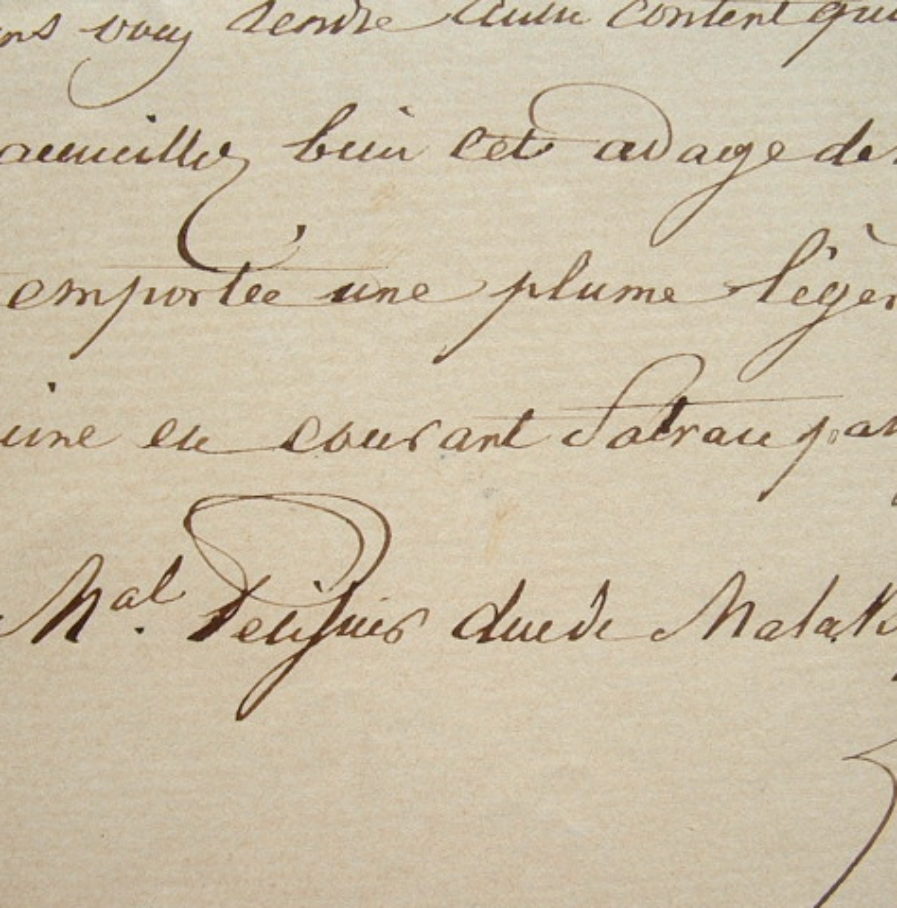 vous rendre content que
accueillez bien cet adage de
emportée une plume légèr
une en courant Satrau par
Mal. Pelissier duc de Malak